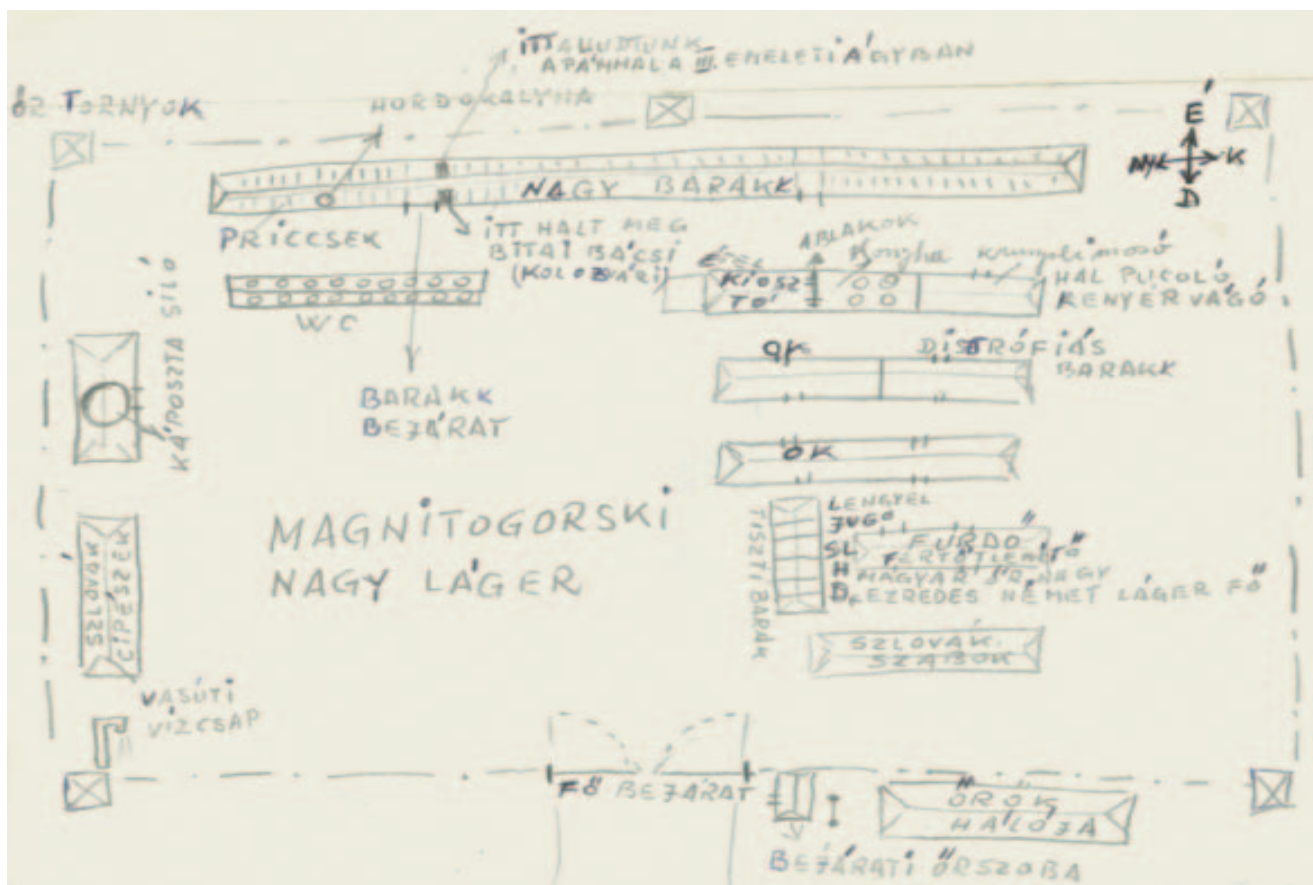 ITT ALUDTUNK
APÁMMAL A III. EMELETI ÁGYBAN
ŐR TORNYOK
HORDOKALYHA
É
NY K
D
NAGY BARAKK
PRICCSEK
ITT HALT MEG
BITAI BÁCSI
(KOLOZSVÁRI)
ABLAKOK
ÉTEL
KIOSZ
TÓ
Konyha
krumplimosó
HAL PUCOLÓ
KENYÉR VÁGÓ
WC
KÁPOSZTA SILÓ
BARAKK
BEJÁRAT
QK
DISTRÓFIÁS
BARAKK
OK
MAGNITOGORSKI
NAGY LÁGER
TISZTI BARAK
LENGYEL
JUGÓ
SL
H
D
FÜRDŐ
FERTŐTLENITŐ
MAGYAR ŐR NAGY
EZREDES NÉMET LÁGER FŐ
SZLOVÁK
CIPÉSZEK
SZLOVÁK
SZABÓK
VASÚTI
VIZCSAP
FŐ BEJÁRAT
ŐRÖK
HÁLÓJA
BEJÁRATI ŐRSZOBA